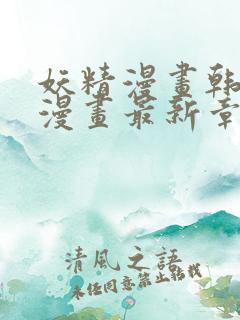 妖精漫畫韓
漫畫最新章
清風之語
未經同意禁止轉載